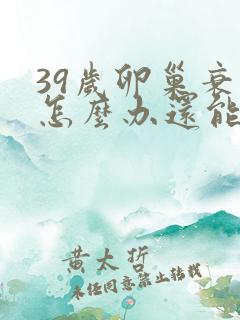 39歲卵巢衰
怎麼办還能
黃太哲
未任同意禁止转载